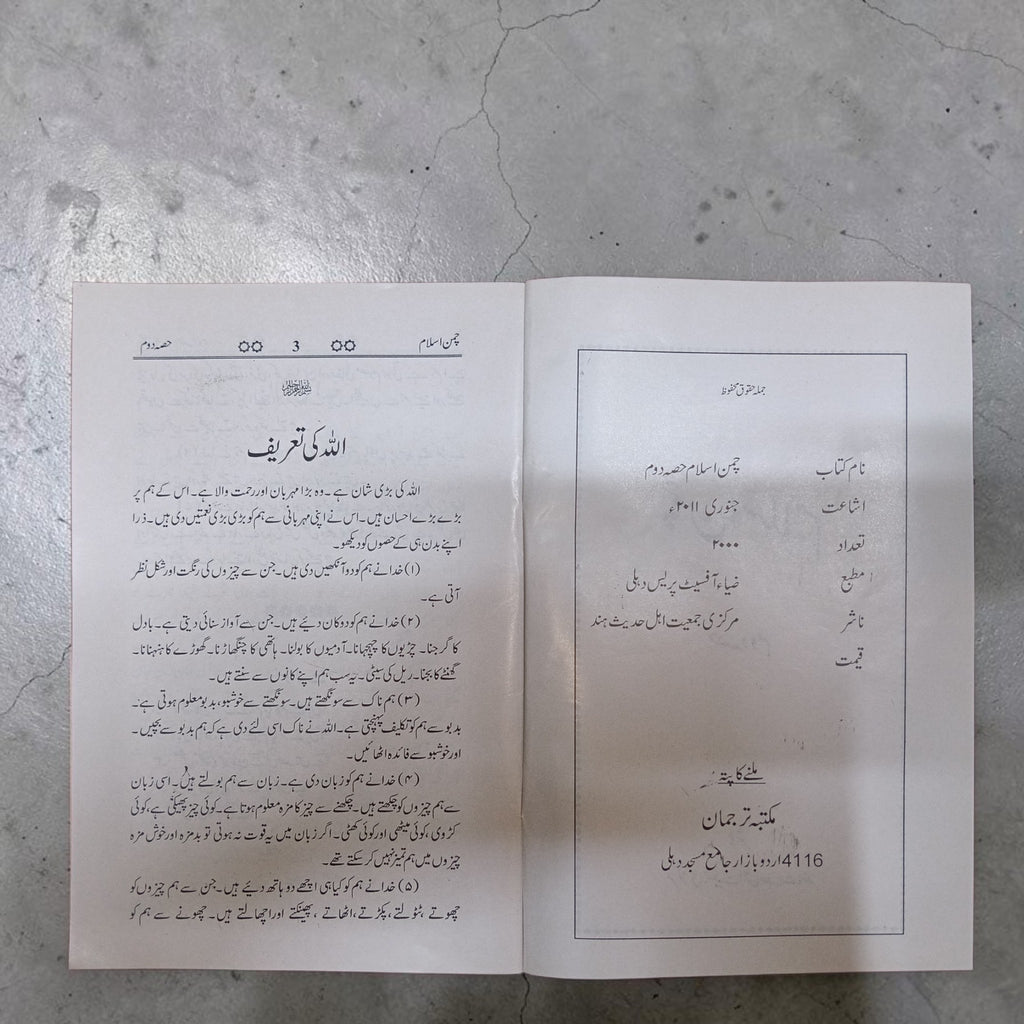 جملہ حقوق محفوظ
نام کتاب چمن اسلام حصہ دوم
اشاعت جنوری ۲۰۱۱ء
تعداد ۲۰۰۰
مطبع ضیاء آفسیٹ پریس دہلی
ناشر مرکزی جمعیت اہل حدیث ہند
قیمت
ملنے کا پتہ
مکتبہ ترجمان
4116اردو بازار جامع مسجد دہلی
چمن اسلام 3 حصہ دوم
بسم اللہ الرحمن الرحیم
اللہ کی تعریف
اللہ کی بڑی شان ہے۔ وہ بڑا مہربان اور رحمت والا ہے۔ اس کے ہم پر
بڑے بڑے احسان ہیں۔ اس نے اپنی مہربانی سے ہم کو بڑی بڑی نعمتیں دی ہیں۔ ذرا
اپنے بدن ہی کے حصوں کو دیکھو۔
(۱) خدا نے ہم کو دو آنکھیں دی ہیں۔ جن سے چیزوں کی رنگت اور شکل نظر
آتی ہے۔
(۲) خدا نے ہم کو دو کان دیئے ہیں۔ جن سے آواز سنائی دیتی ہے۔ بادل
کا گرجنا۔ چڑیوں کا چہچہانا۔ آدمیوں کا بولنا۔ ہاتھی کا چنگھاڑنا۔ گھوڑے کا ہنہنانا۔
گھنٹے کا بجنا۔ ریل کی سیٹی۔ یہ سب ہم اپنے کانوں سے سنتے ہیں۔
(۳) ہم ناک سے سونگھتے ہیں۔ سونگھنے سے خوشبو، بدبو معلوم ہوتی ہے۔
بدبو سے ہم کو تکلیف پہنچتی ہے۔ اللہ نے ناک اسی لئے دی ہے کہ ہم بدبو سے بچیں۔
اور خوشبو سے فائدہ اٹھائیں۔
(۴) خدا نے ہم کو زبان دی ہے۔ زبان سے ہم بولتے ہیں۔ اسی زبان
سے ہم چیزوں کو چکھتے ہیں۔ چکھنے سے چیز کا مزہ معلوم ہوتا ہے۔ کوئی چیز پھیکی ہے، کوئی
کڑوی، کوئی میٹھی اور کوئی کھٹی۔ اگر زبان میں یہ قوت نہ ہوتی تو بدمزہ اور خوش مزہ
چیزوں میں ہم تمیز نہیں کر سکتے تھے۔
(۵) خدا نے ہم کو کیا ہی اچھے دو ہاتھ دیئے ہیں۔ جن سے ہم چیزوں کو
چھوتے، ٹٹولتے، پکڑتے، اٹھاتے، پھینکتے اور اچھالتے ہیں۔ چھونے سے ہم کو